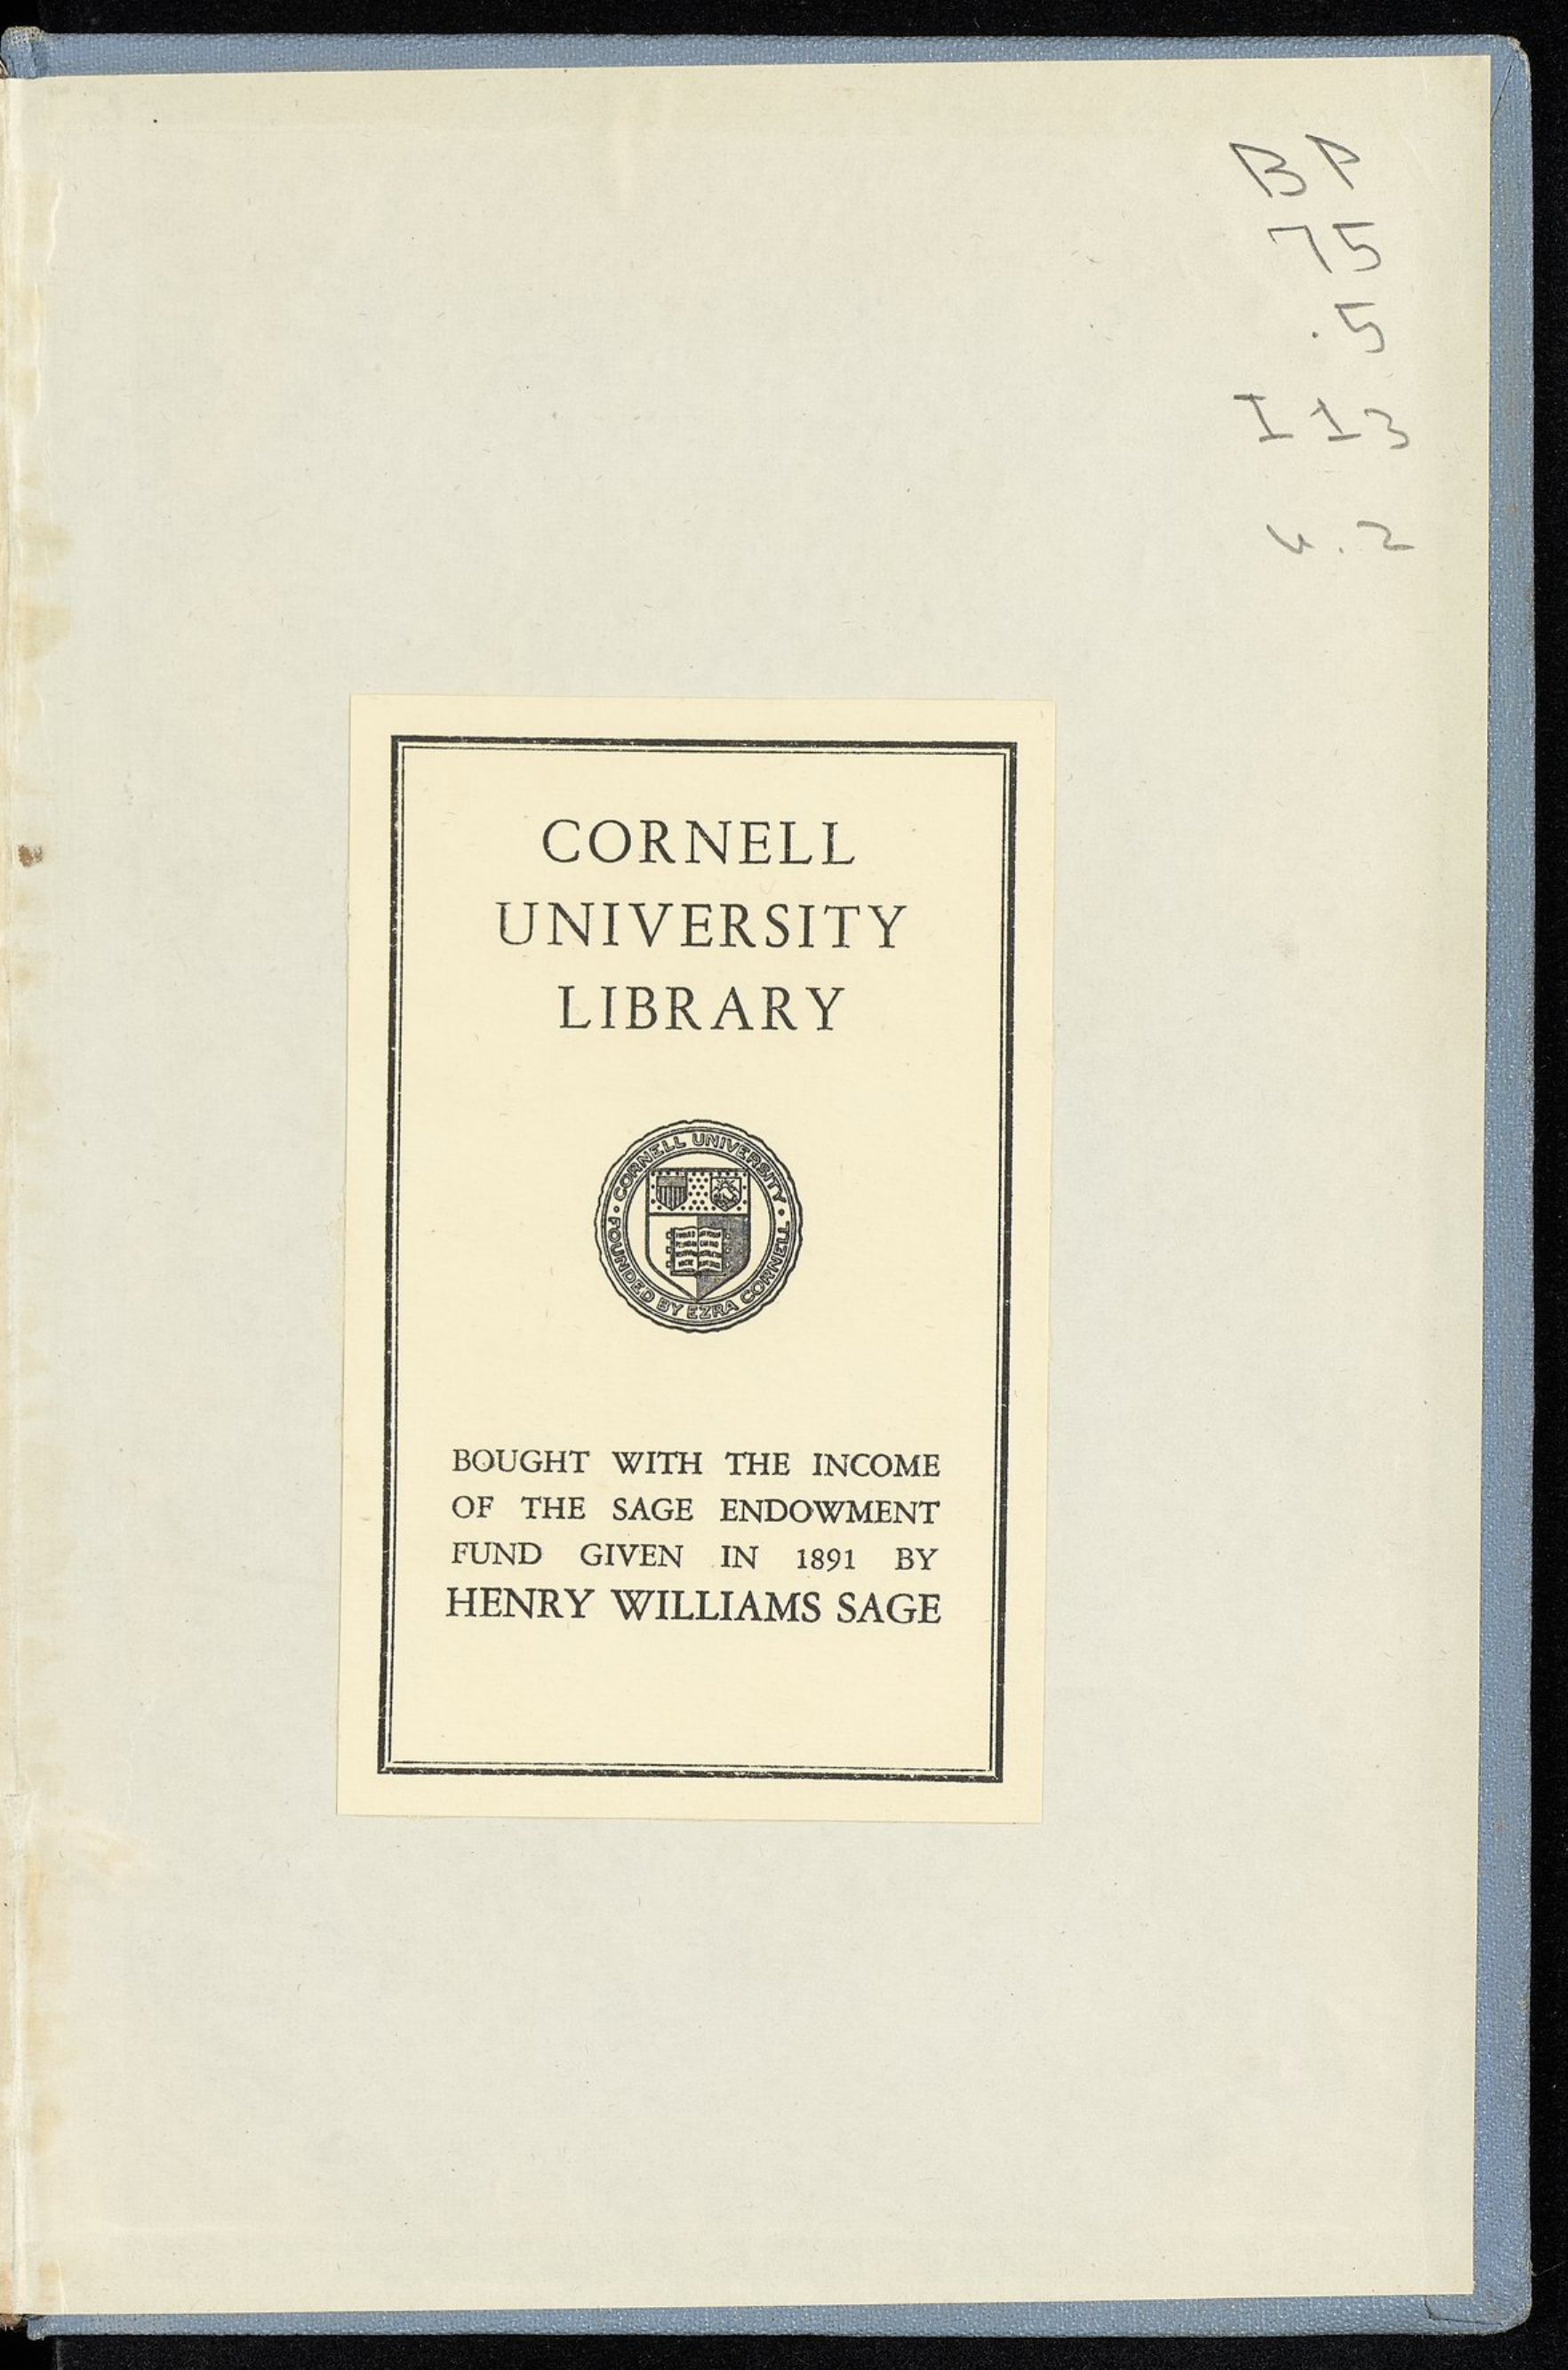 BP
75
.5
I13
v.2
CORNELL
UNIVERSITY
LIBRARY
CORNELL UNIVERSITY
FOUNDED BY EZRA CORNELL
BOUGHT WITH THE INCOME
OF THE SAGE ENDOWMENT
FUND GIVEN IN 1891 BY
HENRY WILLIAMS SAGE